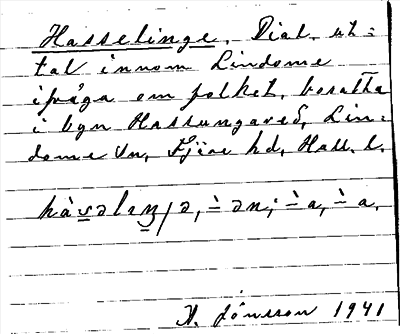 Hasselinge. Dial. ut=
tal innom Lindome
ifråga om folket, bosatta
i byn Hassungared, Lin=
dome sn, Fjäre hd, Hall. l.
hàsəlıŋʃə, -̀ən; -̀a, -̀a.
H. Jönsson 1941